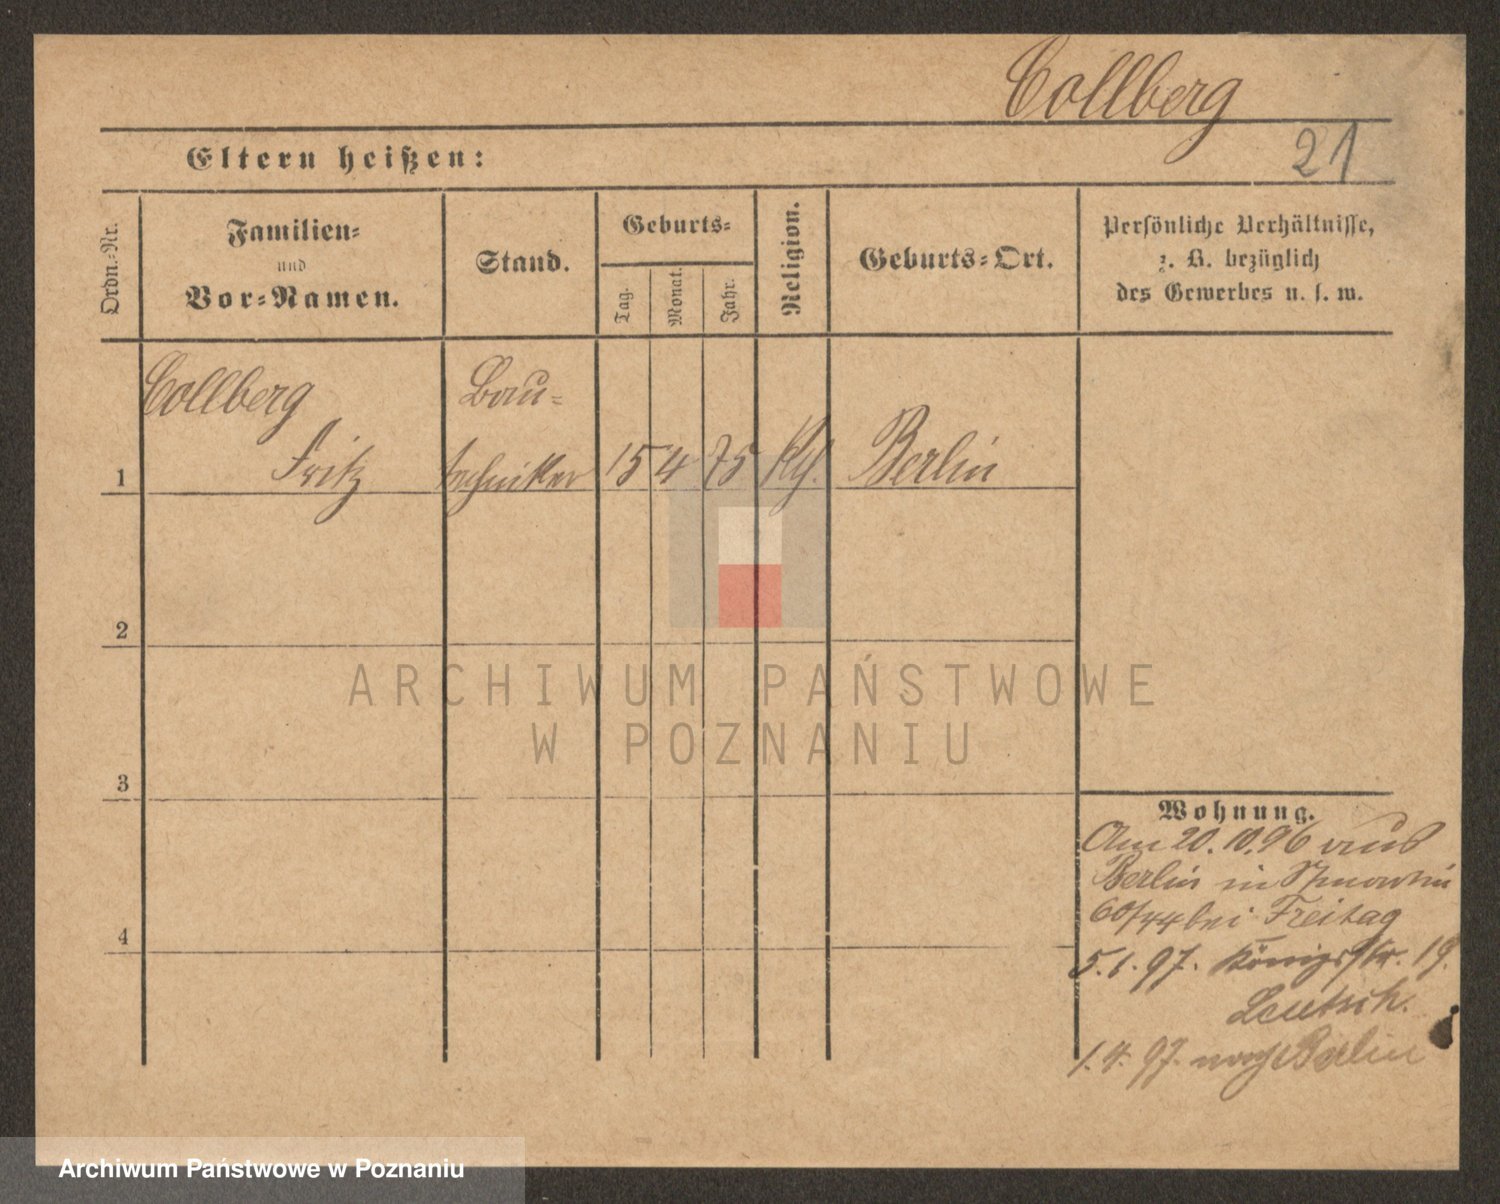 Collberg
21
Eltern heißen:
Ordn.-Nr.
Familien-
und
Vor-Namen.
Stand.
Geburts-
Tag.
Monat.
Jahr.
Religion.
Geburts-Ort.
Persönliche Verhältnisse,
z. B. bezüglich
des Gewerbes u. s. w.
Collberg
Fritz
Bau-
techniker
1
15
4
75
Berlin
2
3
4
Wohnung.
Am 20.10.96 aus
Berlin in
60/44 bei Freitag
5.1.97. Königsstr. 19.
Leutsch.
1.4.97. nach Berlin
ARCHIWUM PAŃSTWOWE
W POZNANIU
Archiwum Państwowe w Poznaniu